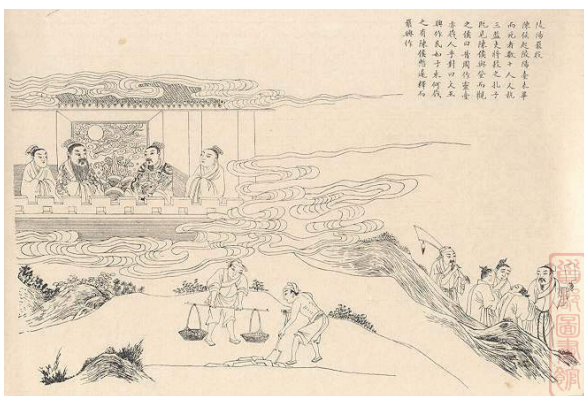 陵陽罷役
陳侯起陵陽臺未畢
而死者數十人又執
三監吏將殺之孔子
既見陳侯與登而觀
之侯曰昔周作靈臺
亦戮人乎對曰文王
興作民如子來何戮
之有陳侯遽釋而
罷興作
圖書館